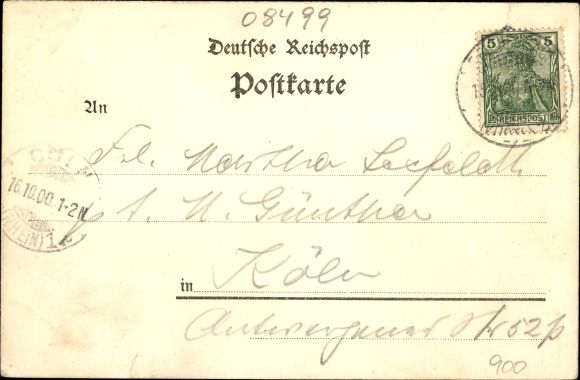 08499
Deutsche Reichspost
Postkarte
5 5
REICHSPOST
An
CÖLN
16.10.00.1-2N
(RHEIN) 1
Frl. Martha Seefeldt
p. A. W. Günther
in Köln
Antwerpener Str 52 p
900